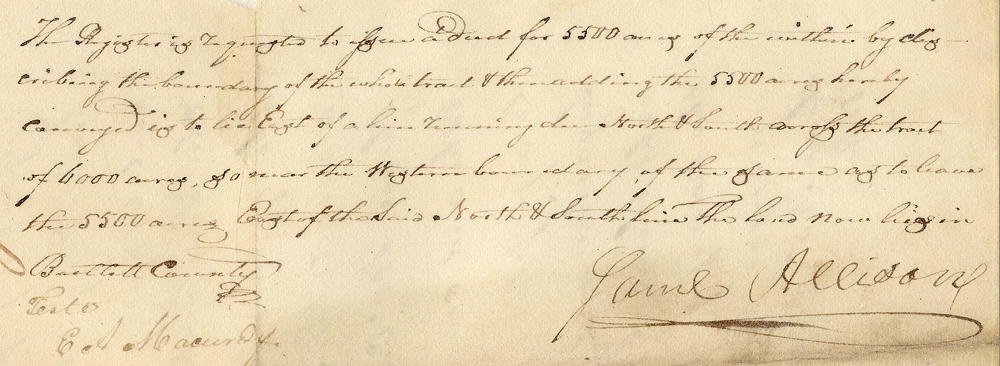 The Register is requested to issue a deed for 5500 acres of the within by des-
cribing the boundary of the whole tract & then adding the 5500 acres hereby
conveyed is to lie East of a line running due North & South across the tract
of 6000 acres, so near the Western boundary of the same as to leave
the 5500 acres East of the Said North & South line The land now lies in
County
Saml Allison
Teste
E A